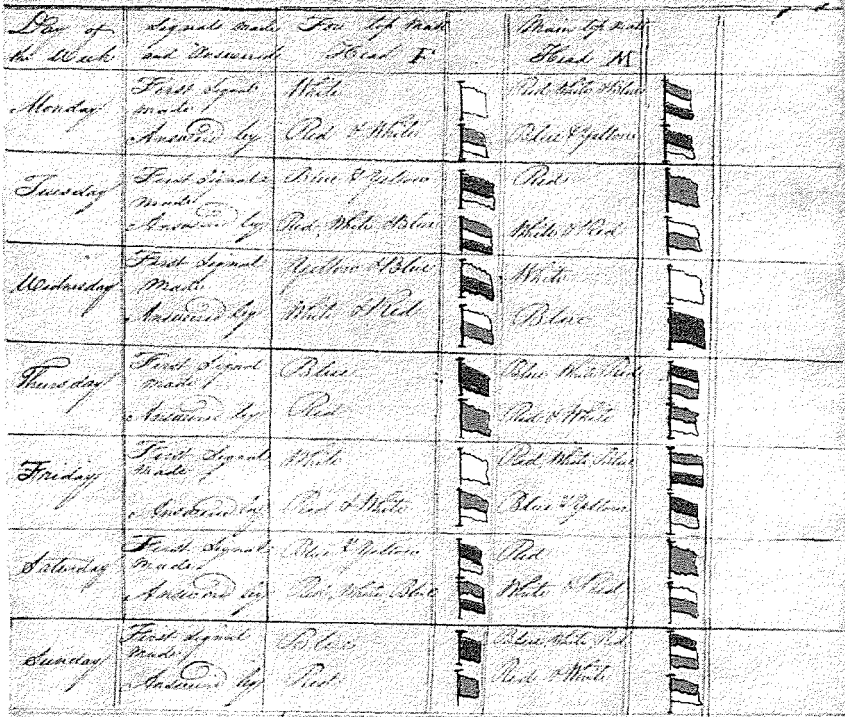 Day of Signals made Fore top mast Main top mast
the Week and Answered Head F Head M
Monday First Signal White Red White & Blue
made
Answered by Red & White Blue & Yellow
Tuesday First Signal Blue & Yellow Red
made
Answered by Red, White & Blue White & Red
Wednesday First Signal Yellow & Blue White
made
Answered by White & Red Blue
Thursday First Signal Blue Blue White Red
made
Answered by Red Red & White
Friday First Signal White Red White Blue
made
Answered by Red & White Blue & Yellow
Saturday First Signal Blue & Yellow Red
made
Answered by Red, White Blue White & Red
Sunday First Signal Blue Blue White Red
made
Answered by Red Red & White